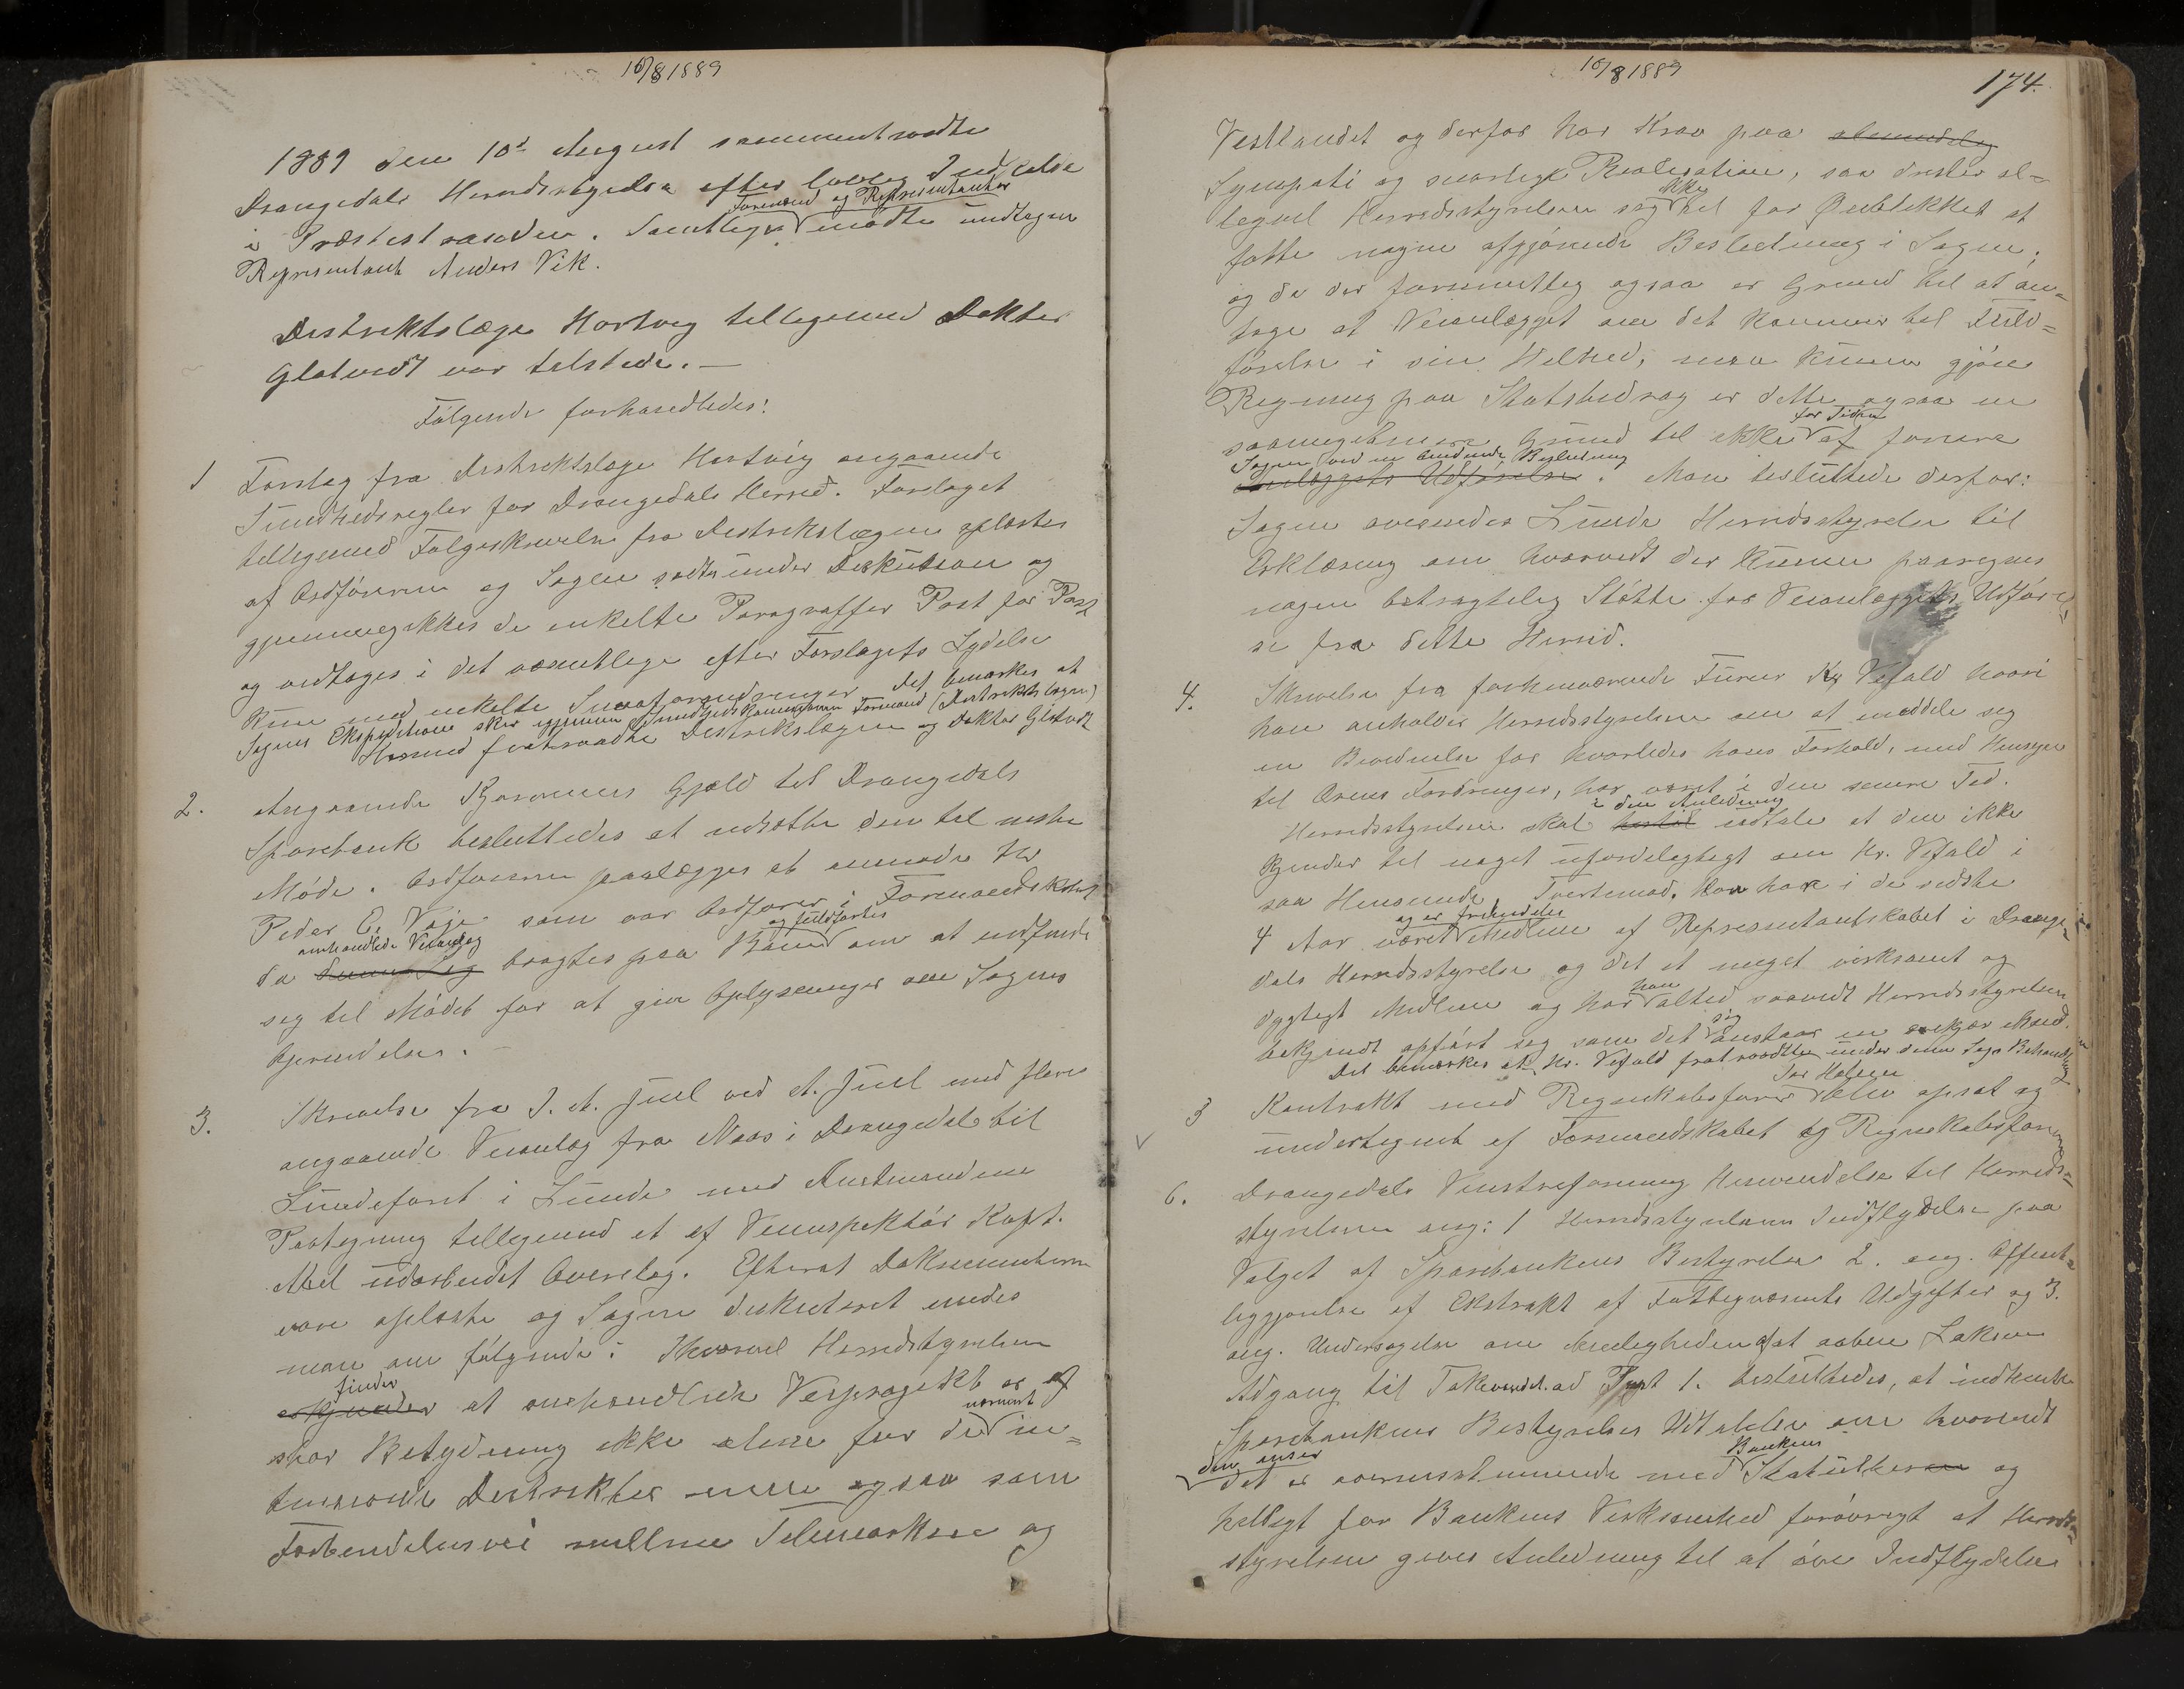 10/8 1889
1889 den 10de August sammentraadte
Drangedals Herredsstyrelse efter lovlig Indkaldelse
i Præstestranden. Samtlige Formænd og Repræsentanter mødte undtagen
Repræsentant Anders Vik.
Distriktslæge Hartvig tilligemed Doktor
Glatvedt var tilstede. —
Følgende forhandledes:
1 Forslag fra Distriktslæge Hartvig angaaende
Sundhedsregler for Drangedals Herred. Forslaget
tilligemed Følgeskrivelse fra Distriktslægen oplæstes
af Ordføreren og Sagen sattes under Diskussion og
gjennemgikkes de enkelte Paragraffer Post for Post
og vedtoges i det væsentlige efter Forslagets Lydelse
kun med enkelte Smaaforandringer. Det bemærkes at
Sagens Ekspedition sker igjennem Sundhedskommissionens Formand (Distriktslægen)
Hermed fratraadte Distriktslægen og Doktor Glatvedt
2. Angaaende Kommunens Gjæld til Drangedals
Sparebank besluttedes at udsætte den til næste
Møde. Ordføreren paalægges at anmode Hr
Peder C. Vaje som var Ordfører i Formandskabet
da omhandlede Veianlæg bragtes paa Bane og fuldførtes om at indfinde
sig til Mødet for at give Oplysninger om Sagens
Oprindelse. —
3. Skrivelse fra J. A. Juel ved A. Juel med flere
angaaende Veianlæg fra Naas i Drangedal til
Lundefaret i Lunde med Amtmandens
Paategning tilligemed et af Veiinspektør Kapt.
Abel udarbeidet Overslag. Efterat Dokumenterne
vare oplæste og Sagen diskuteret enedes
man om følgende: Skjøndt Herredsstyrelsen
finder at omhandlede Veiprojekt er af
stor Betydning ikke alene for de nærmest in-
teresserede Distrikter men ogsaa som
Forbindelsesvei mellem Telemarken og
10/8 1889
174.
Vestlandet og derfor har Krav paa almindelig
Sympati og snarlig Realisation, saa drister al-
ligevel Herredsstyrelsen sig ikke til for Øieblikket at
fatte nogen afgjørende Beslutning i Sagen,
og da der formentlig ogsaa er Grund til at an-
tage at Veianlægget om det kommer til Fuld-
førelse i sin Helhed, maa kunne gjøre
Regning paa Statsbidrag er dette ogsaa en
saameget mere Grund til ikke for Tiden at forcere
Sagen ved en bindende Beslutning
Anlæggets Udførelse. Man besluttede derfor:
Sagen oversendes Lunde Herredsstyrelse til
Erklæring om hvorvidt der kunne paaregnes
nogen betragtelig Støtte for Veianlæggets Udførel-
se fra dette Herred.
4. Skrivelse fra forhenværende Furer Kr Vefald hvori
han anholder Herredsstyrelsen om at meddele sig
en Bevidnelse for hvorledes hans Forhold, med Hensyn
til Ærens Fordringer, har været i den senere Tid.
Herredsstyrelsen skal i den Anledning udtale at den ikke
kjender til noget ufordelagtigt om Hr. Vefald i
saa Henseende. Tvertimod. Han har i de sidste
4 Aar været og er fremdeles Medlem af Repræsentantskabet i Drange-
dals Herredsstyrelse og det et meget virksomt og
dygtigt Medlem og har han altid saavidt Herredsstyrelsen
bekjendt opført sig som det sig anstaar en ærekjær Mand.
Det bemærkes at Hr. Vefald fratraadte under denne Sags Behandling
5 Kontrakt med Regnskabsfører Jar Halvor blev opsat og
undertegnet af Formandskabet og Regnskabsføreren
6. Drangedals Venstreforenings Henvendelse til Herreds-
styrelsen ang: 1 Herredsstyrelsens Indflydelse paa
Valget af Sparebankens Bestyrelse 2. ang. Offent-
liggjørelse af Ekstrakt af Fattigvæsenets Udgifter og 3.
ang. Undersøgelse om Muligheden af at aabne Laksen
Adgang til Tokevandet. ad Post 1. besluttedes, at indhente
Sparebankens Bestyrelses Udtalelse om hvorvidt
den anser
det er overensstemmende med Bankens Statuter og
heldigt for Bankens Virksomhed forøvrigt at Herreds-
styrelsen gives Anledning til at øve Indflydelse